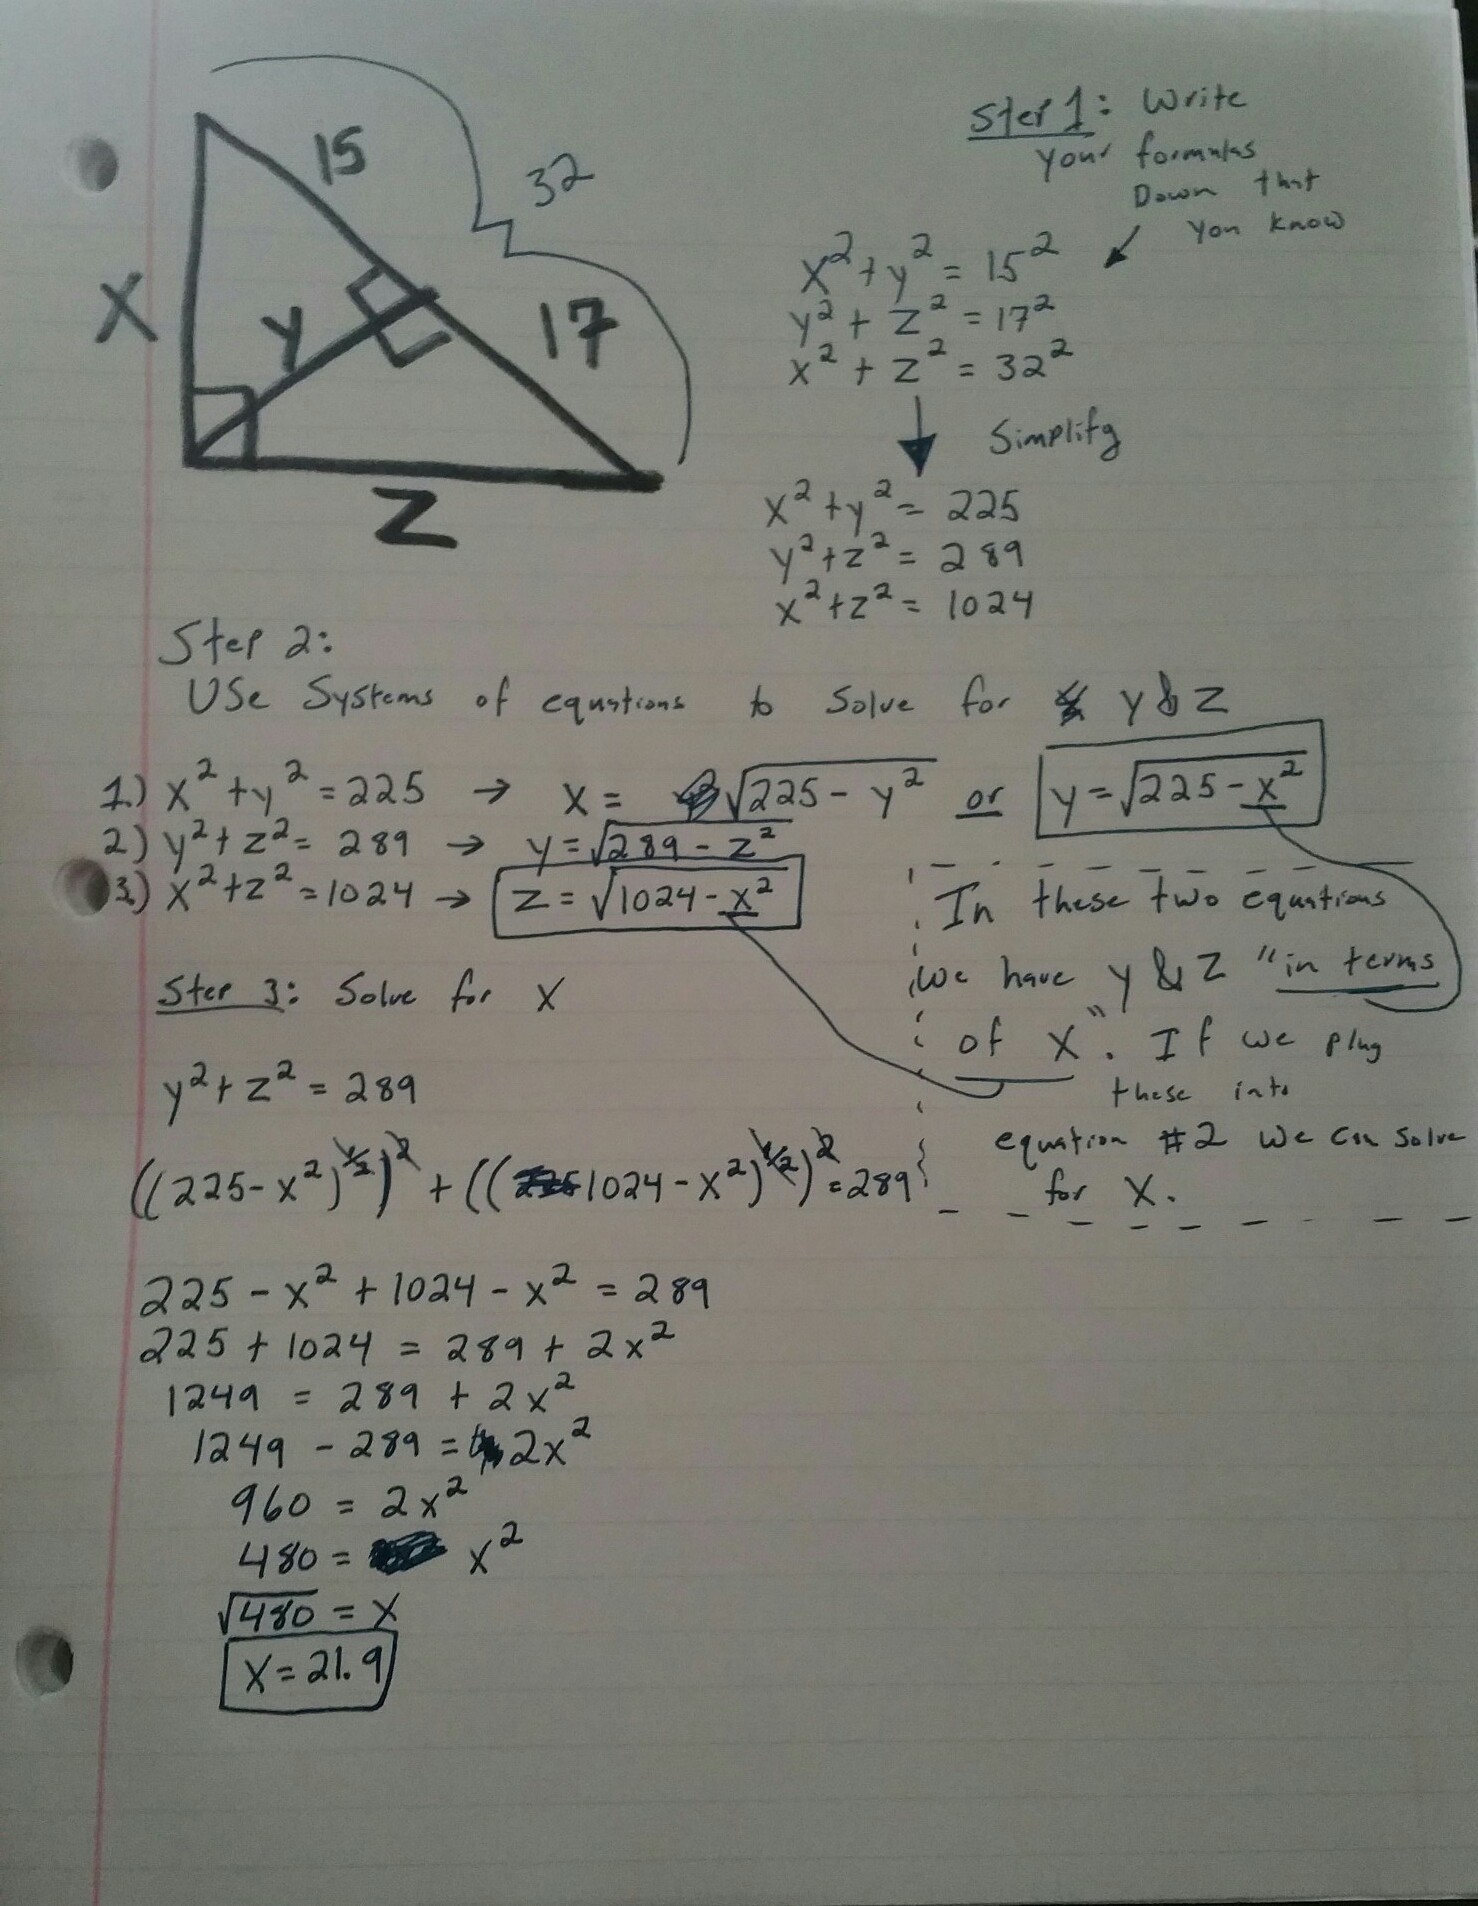 15
32
X
y
17
Z
Step 1: Write
your formulas
Down that
you know
x² + y² = 15²
y² + z² = 17²
x² + z² = 32²
Simplify
x² + y² = 225
y² + z² = 289
x² + z² = 1024
Step 2:
Use Systems of equations to Solve for y & z
1.) x² + y² = 225 → x = √225 - y² or y = √225 - x²
2) y² + z² = 289 → y = √289 - z²
3.) x² + z² = 1024 → z = √1024 - x²
In these two equations
we have y & z "in terms
of x". If we plug
these into
equation #2 we can solve
for x.
Step 3: Solve for x
y² + z² = 289
((225 - x²)^½)² + ((1024 - x²)^½)² = 289
225 - x² + 1024 - x² = 289
225 + 1024 = 289 + 2x²
1249 = 289 + 2x²
1249 - 289 = 2x²
960 = 2x²
480 = x²
√480 = x
x = 21.9